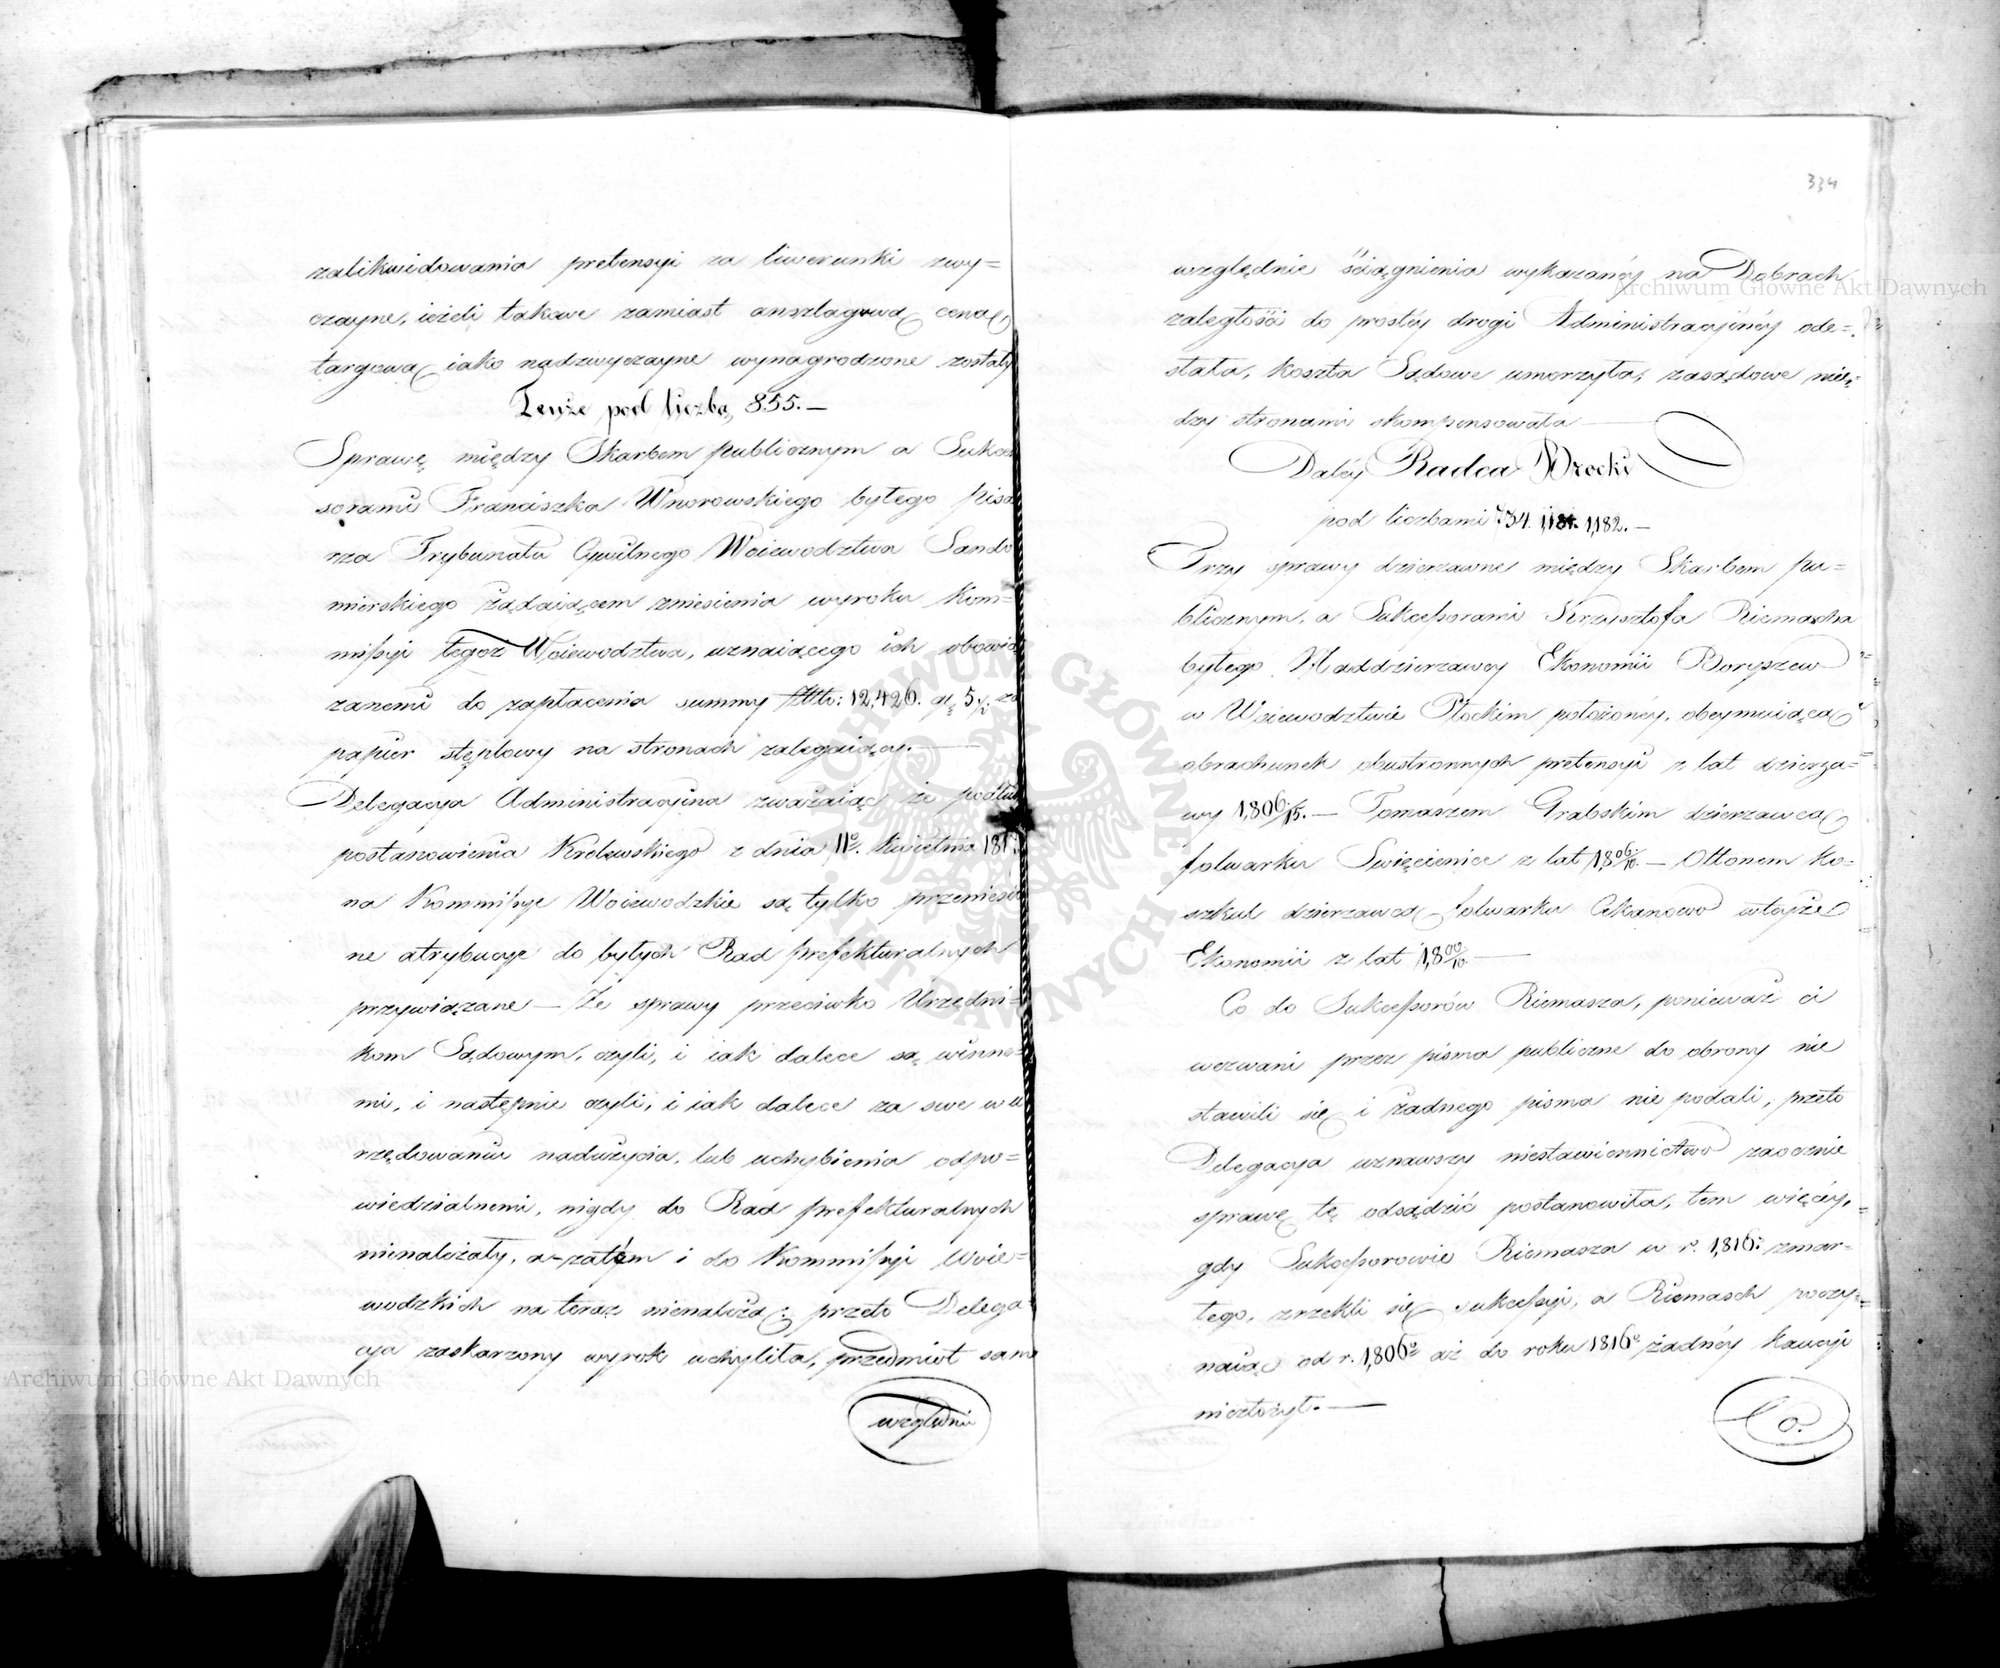 zalikwidowania pretensyi za liwerunki zwy=
czayne, ieżeli takowe zamiast anszlagową ceną,
targową iako nadzwyczayne wynagrodzone zostały
Tenże pod liczbą 855.—
Sprawę między Skarbem publicznym a Sukces
sorami Franciszka Wnorowskiego byłego Pisa
rza Trybunału Cywilnego Woiewodztwa Sando
mierskiego żądaiącem zniesienia wyroku Kom=
missyi tegoż Woiewodztwa, uznaiącego ich obowią
zanemi do zapłacenia summy Złtt: 12,426. gr. 5½. za
papier stęplowy na stronach zalegaiący.—
Delegacya Administracyina zważaiąc że podług
postanowienia Królewskiego z dnia 11º. Kwietnia 181
na Kommissye Woiewodzkie są tylko przeniesio
ne atrybucye do byłych Rad prefekturalnych
przywiązane — Że sprawy przeciwko Urzędni=
kom Sądowym, czyli, i iak dalece są winne=
mi, i następnie czyli, i iak dalece za swe w u
rzędowaniu nadużycia, lub uchybienia odpo=
wiedzialnemi, nigdy do Rad prefekturalnych
nienależały, a-zatém i do Kommissyi Woie=
wodzkich na teraz nienależą: przeto Delega=
cya zaskarzony wyrok uchyliła, przedmiot sam
względnie
334
względnie ściągnienia wykazanéy na Dobrach
zaległości do prostéy drogi Administracyinéy ode=
słała, koszta Sądowe umorzyła, zasądowe mię=
dzy stronami skompensowała —
Daléy Radca Wrocki
pod liczbami 734. 1,181. 1,182.—
Trzy sprawy dzierzawne między Skarbem pu=
blicznym, a Sukcessorami Krzysztofa Riemascha
byłego Naddzierzawcy Ekonomii Boryszew
w Woiewodztwie Płockim położonéy, obeymuiącą
obrachunek obustronnych pretensyi z lat dzierza=
wy 1,806/15.— Tomaszem Grabskim dzierzawcą
folwarku Swięcienice z lat 1,806/10.— Ottonem Ko=
szkul dzierzawcą folwarku Cekanowo wteyże
Ekonomii z lat 1,809/10.—
Co do Sukcessorów Riemasza, ponieważ ci
wezwani przez pisma publiczne do obrony nie
stawili się i żadnego pisma nie podali, przeto
Delegacya uznawszy niestawiennictwo zaocznie
sprawę tę odsądzić postanowiła, tem więcéy,
gdy Sukcessorowie Riemasza w r. 1,816: zmar=
łego, zrzekli się sukcessyi, a Riemasch poczy=
naiąc od r. 1,806º aż do roku 1816º żadnéy kaucyi
niezłożył.—
Co.
Archiwum Główne Akt Dawnych
Archiwum Główne Akt Dawnych
ARCHIWUM GŁÓWNE AKT DAWNYCH